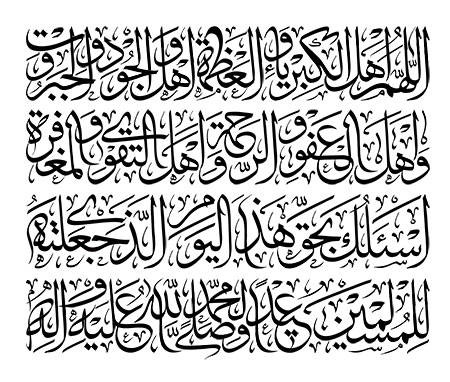 اللهم اهل الكبرياء والعظمة واهل الجود والجبروت
واهل العفو والرحمة واهل التقوى والمغفرة
اسئلك بحق هذا اليوم الذي جعلته
للمسلمين عيداً ولمحمد صلى الله عليه وآله